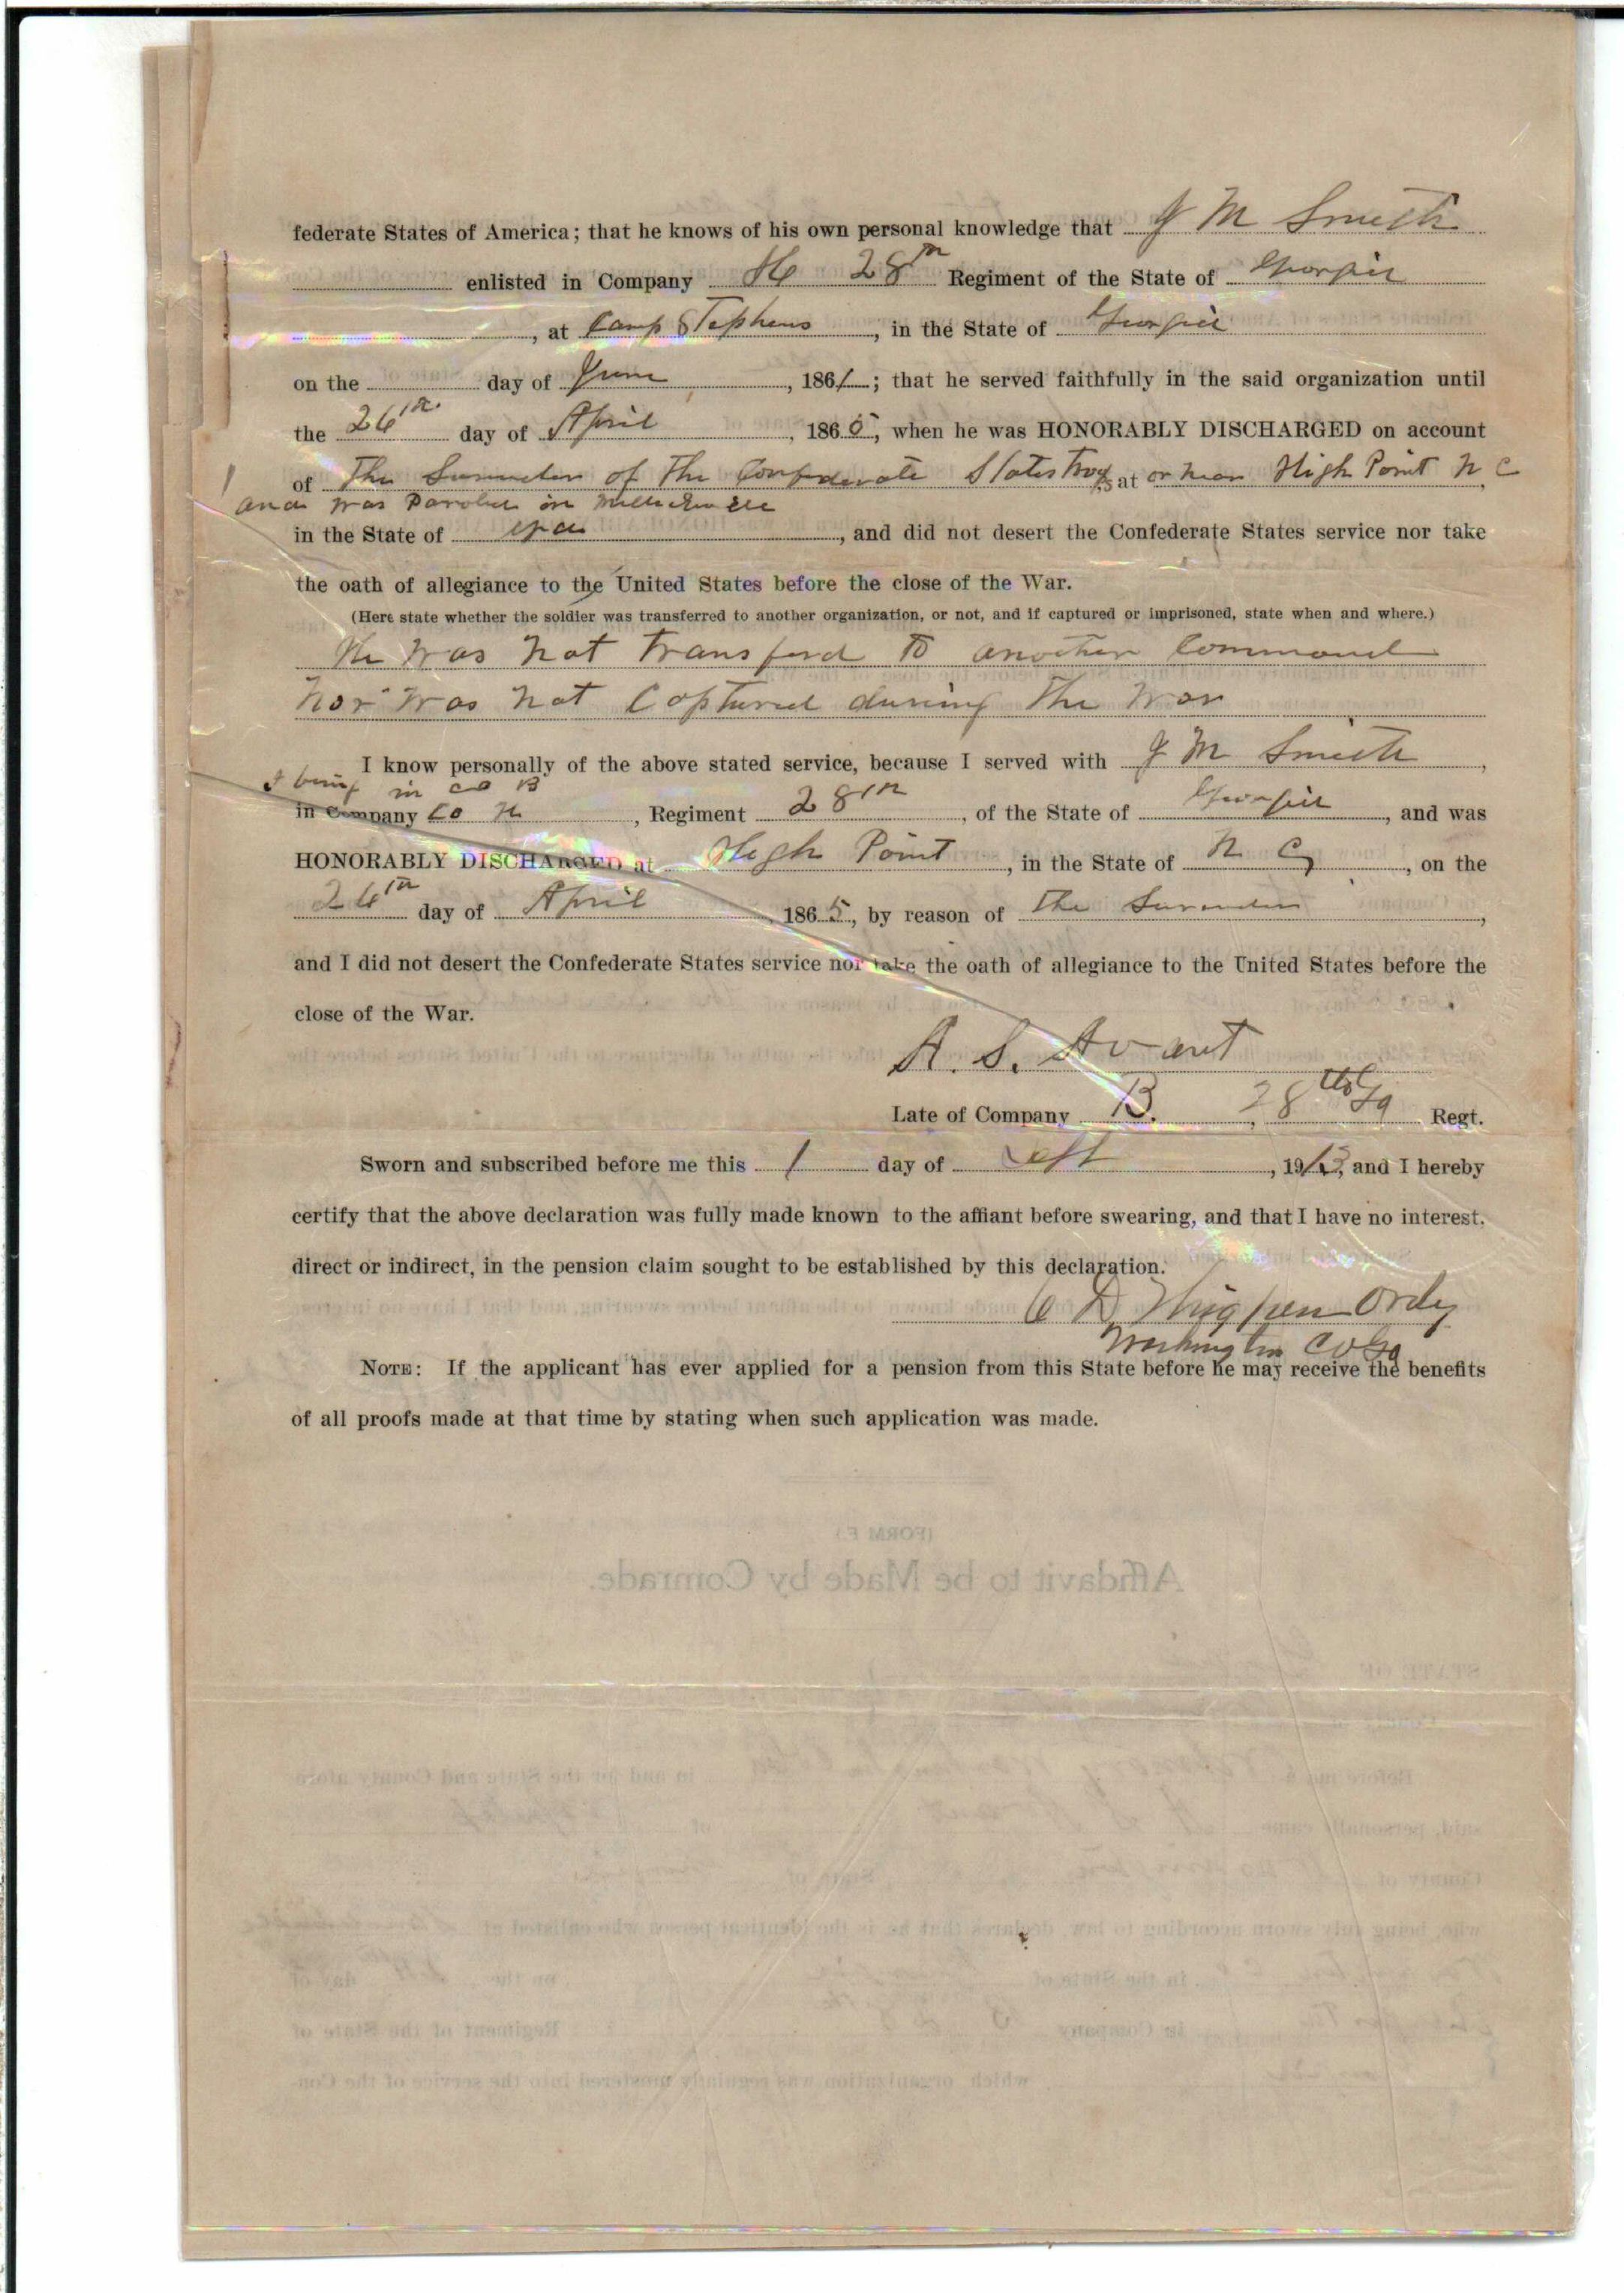 federate States of America; that he knows of his own personal knowledge that J M Smith
enlisted in Company H 28th Regiment of the State of Georgia
, at Camp Stephens, in the State of Georgia
on the day of June, 1861; that he served faithfully in the said organization until
the 26th day of April, 1865, when he was HONORABLY DISCHARGED on account
of The Surender of The Confederate States Troops at or near High Point N C
and was Paroled in
in the State of Ga, and did not desert the Confederate States service nor take
the oath of allegiance to the United States before the close of the War.
(Here state whether the soldier was transferred to another organization, or not, and if captured or imprisoned, state when and where.)
He was not transferd to another Command
nor was not Captured during the war
I know personally of the above stated service, because I served with J M Smith,
I being in co B
in Company Co H, Regiment 28th, of the State of Georgia, and was
HONORABLY DISCHARGED at High Point, in the State of N C, on the
26th day of April 1865, by reason of the Surender,
and I did not desert the Confederate States service nor take the oath of allegiance to the United States before the
close of the War.
A. S. Avant
Late of Company B., 28th Ga Regt.
Sworn and subscribed before me this 1 day of Sept, 1913, and I hereby
certify that the above declaration was fully made known to the affiant before swearing, and that I have no interest,
direct or indirect, in the pension claim sought to be established by this declaration.
C D Thigpen Ordy
Washington Co Ga
NOTE: If the applicant has ever applied for a pension from this State before he may receive the benefits
of all proofs made at that time by stating when such application was made.
(FORM F.)
Affidavit to be Made by Comrade.